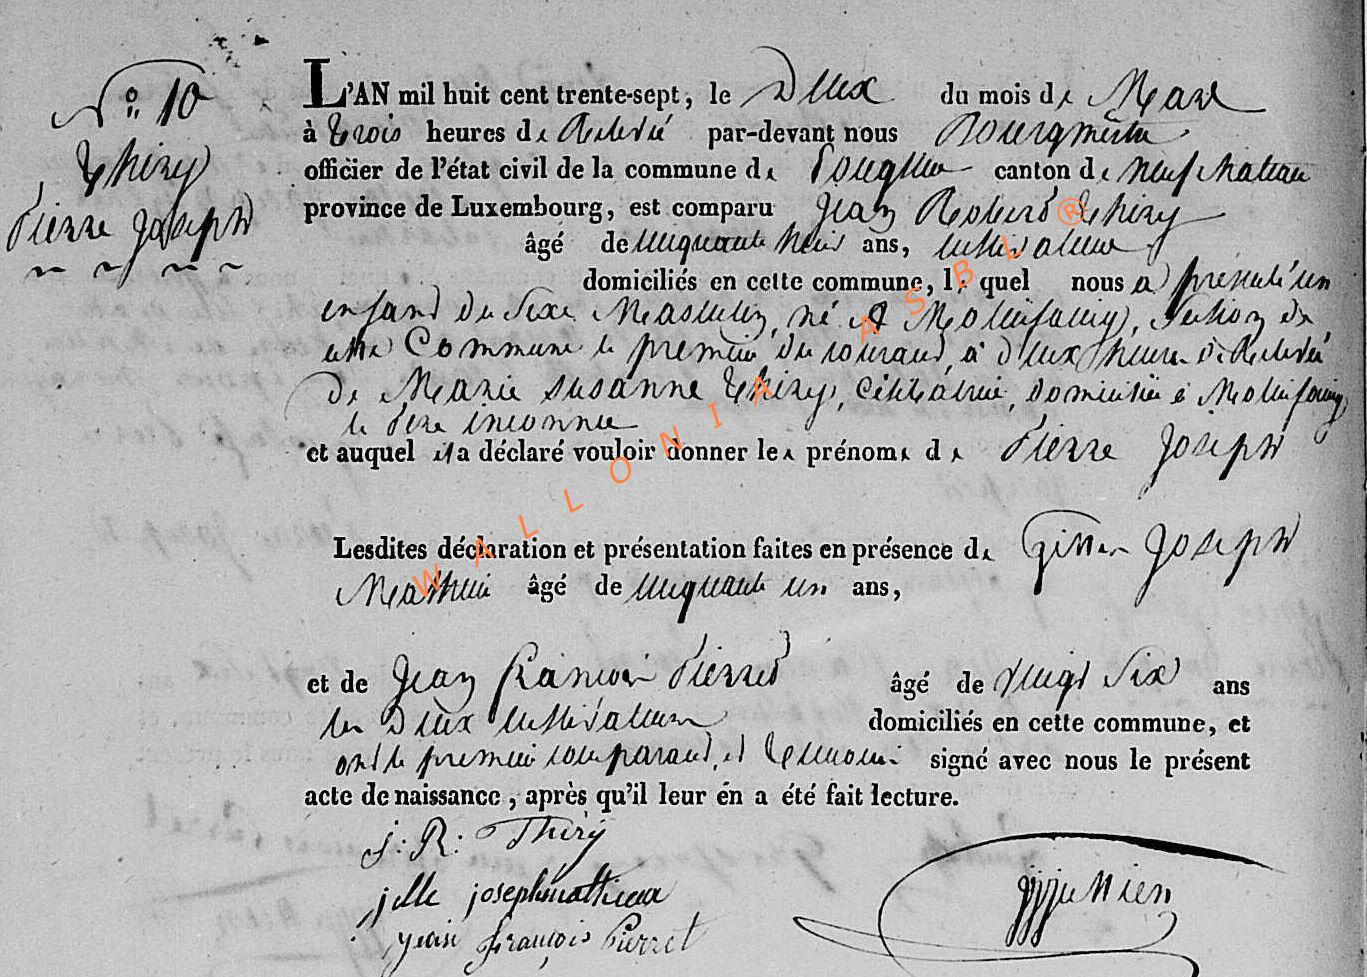 N° 10
Thiry
Pierre Joseph
L'AN mil huit cent trente-sept, le Deux du mois de Mars
à trois heures de Relevé par-devant nous Bourgmestre
officier de l'état civil de la commune de Longlier canton de neufchateau
province de Luxembourg, est comparu Jean Robert Thiry
âgé de cinquante trois ans, cultivateur
domiciliés en cette commune, le quel nous a présenté un
enfant du Sexe Masculin, né à Molinfaing, Section de
cette Commune le premier du courant, à deux heures de Relevé
de Marie Susanne Thiry, Célibataire, Domiciliée à Molinfaing
le Père inconnu
et auquel il a déclaré vouloir donner les prénoms de Pierre Joseph
Lesdites déclaration et présentation faites en présence de Gille Joseph
Mathieu âgé de cinquante un ans,
et de Jean François Pierret âgé de vingt Six ans
les Deux cultivateurs domiciliés en cette commune, et
ont le premier comparant, et témoins signé avec nous le présent
acte de naissance, après qu'il leur én a été fait lecture.
J: R: Thiry
jille joseph mathieux
jean françois Pierret
WALLONIA ASBL ®